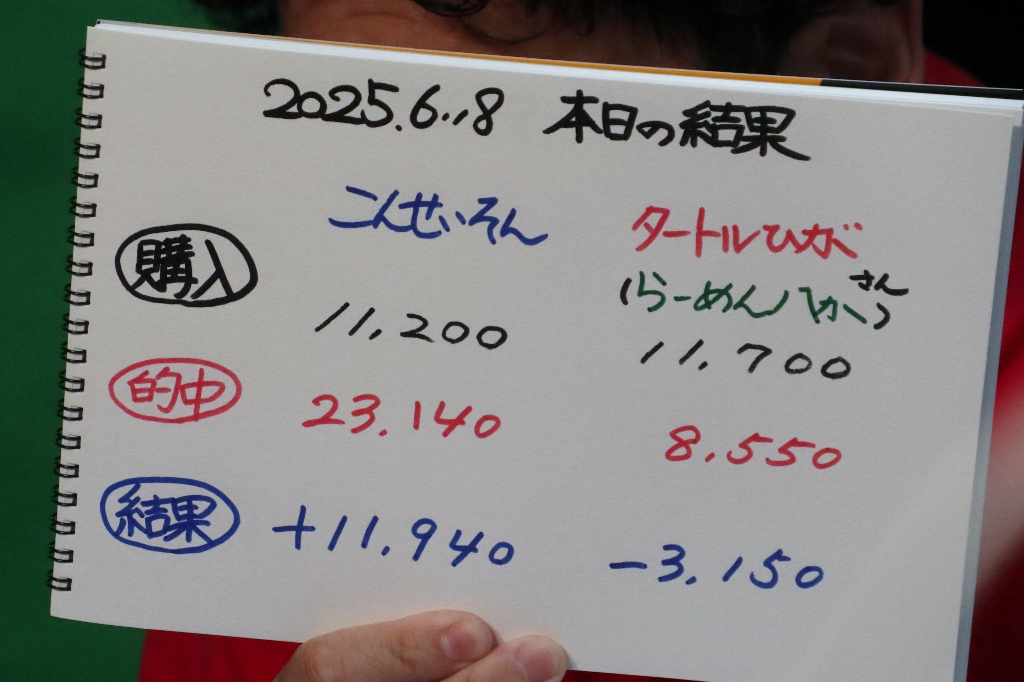 2025.6.18 本日の結果
こんせいそん タートルひが
(らーめんハやしさん)
購入 11,200 11.700
的中 23.140 8.550
結果 +11.940 -3.150